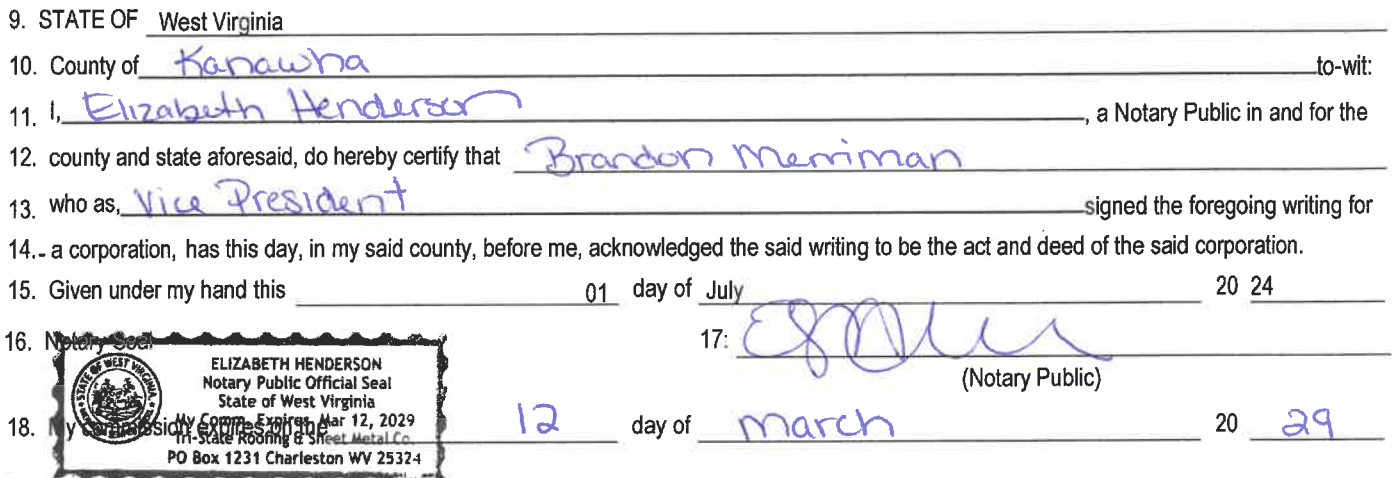 9. STATE OF West Virginia
10. County of Kanawha to-wit:
11. I, Elizabeth Henderson, a Notary Public in and for the
12. county and state aforesaid, do hereby certify that Brandon Merriman
13. who as, Vice President signed the foregoing writing for
14. a corporation, has this day, in my said county, before me, acknowledged the said writing to be the act and deed of the said corporation.
15. Given under my hand this 01 day of July 20 24
16. Notary Seal 17:
(Notary Public)
STATE OF WEST VIRGINIA
ELIZABETH HENDERSON
Notary Public Official Seal
State of West Virginia
My Comm. Expires Mar 12, 2029
Tri-State Roofing & Sheet Metal Co.
PO Box 1231 Charleston WV 25324
18. My commission expires on the 12 day of March 20 29